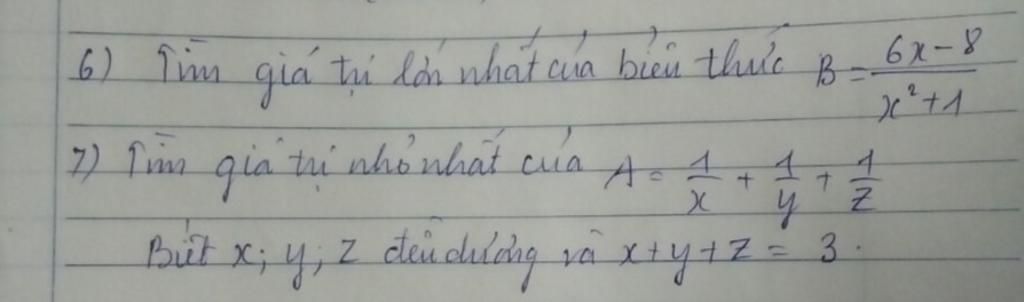 6) Tìm giá trị lớn nhất của biểu thức B = (6x-8)/(x²+1)
7) Tìm giá trị nhỏ nhất của A = 1/x + 1/y + 1/z
Biết x; y; z đều dương và x+y+z = 3.